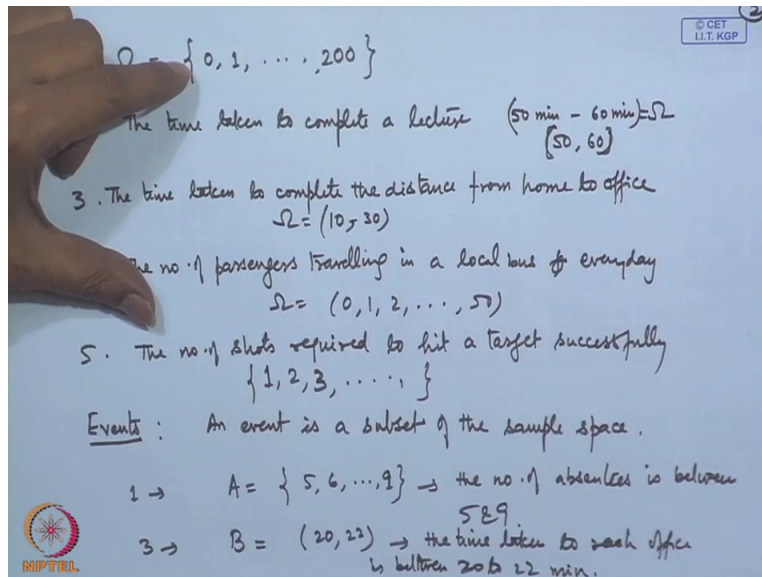 2
© CET
I.I.T. KGP
Ω = { 0, 1, ...., 200 }
The time taken to complete a lecture (50 min - 60 min) = Ω
[50, 60]
3. The time taken to complete the distance from home to office
Ω = (10, 30)
The no. of passengers travelling in a local bus everyday
Ω = (0, 1, 2, ..., 50)
5. The no. of shots required to hit a target successfully
{ 1, 2, 3, ..... }
Events : An event is a subset of the sample space.
1 → A = { 5, 6, ..., 9 } → the no. of absentees is between
5 & 9.
3 → B = (20, 22) → the time taken to reach office
is between 20 to 22 min.
NPTEL